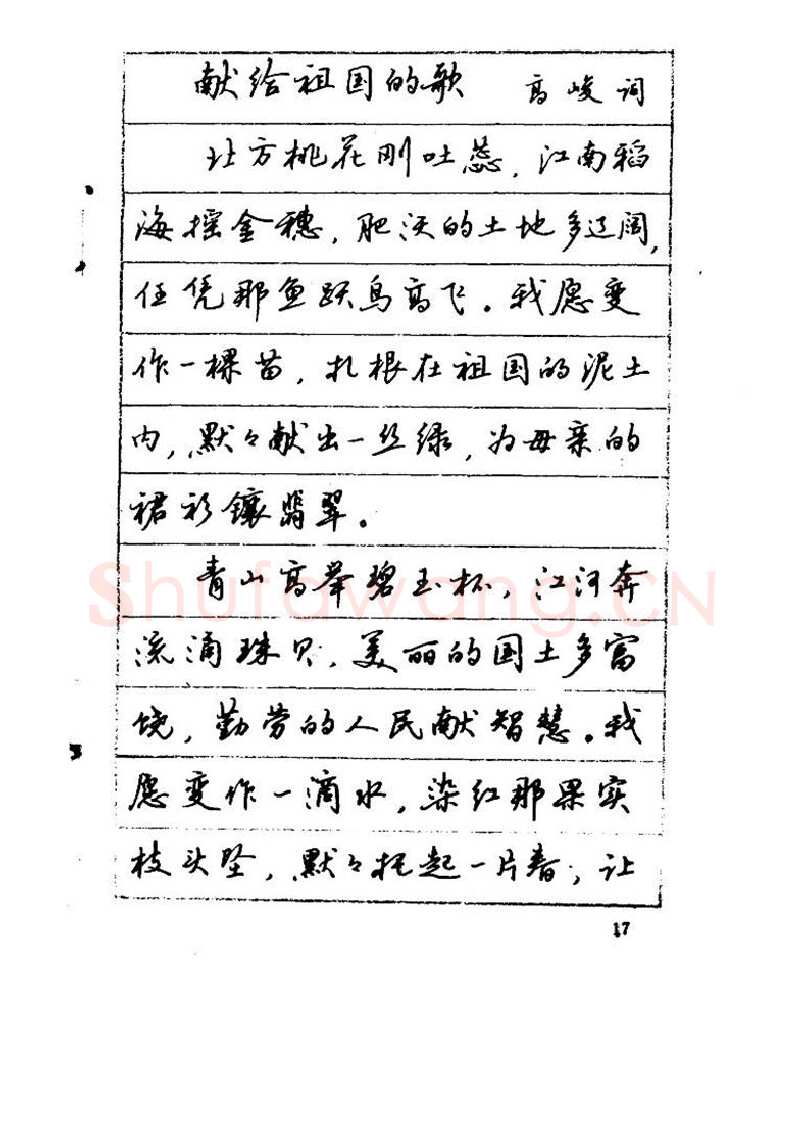 献给祖国的歌 高峻词
北方桃花刚吐蕊，江南稻
海摇金穗，肥沃的土地多辽阔，
任凭那鱼跃鸟高飞。我愿变
作一棵苗，扎根在祖国的泥土
内，默々献出一丝绿，为母亲的
裙衫镶翡翠。
青山高举碧玉杯，江河奔
流滴珠贝，美丽的国土多富
饶，勤劳的人民献智慧。我
愿变作一滴水，染红那果实
枝头坠，默々托起一片春，让
17
Shufawang.CN